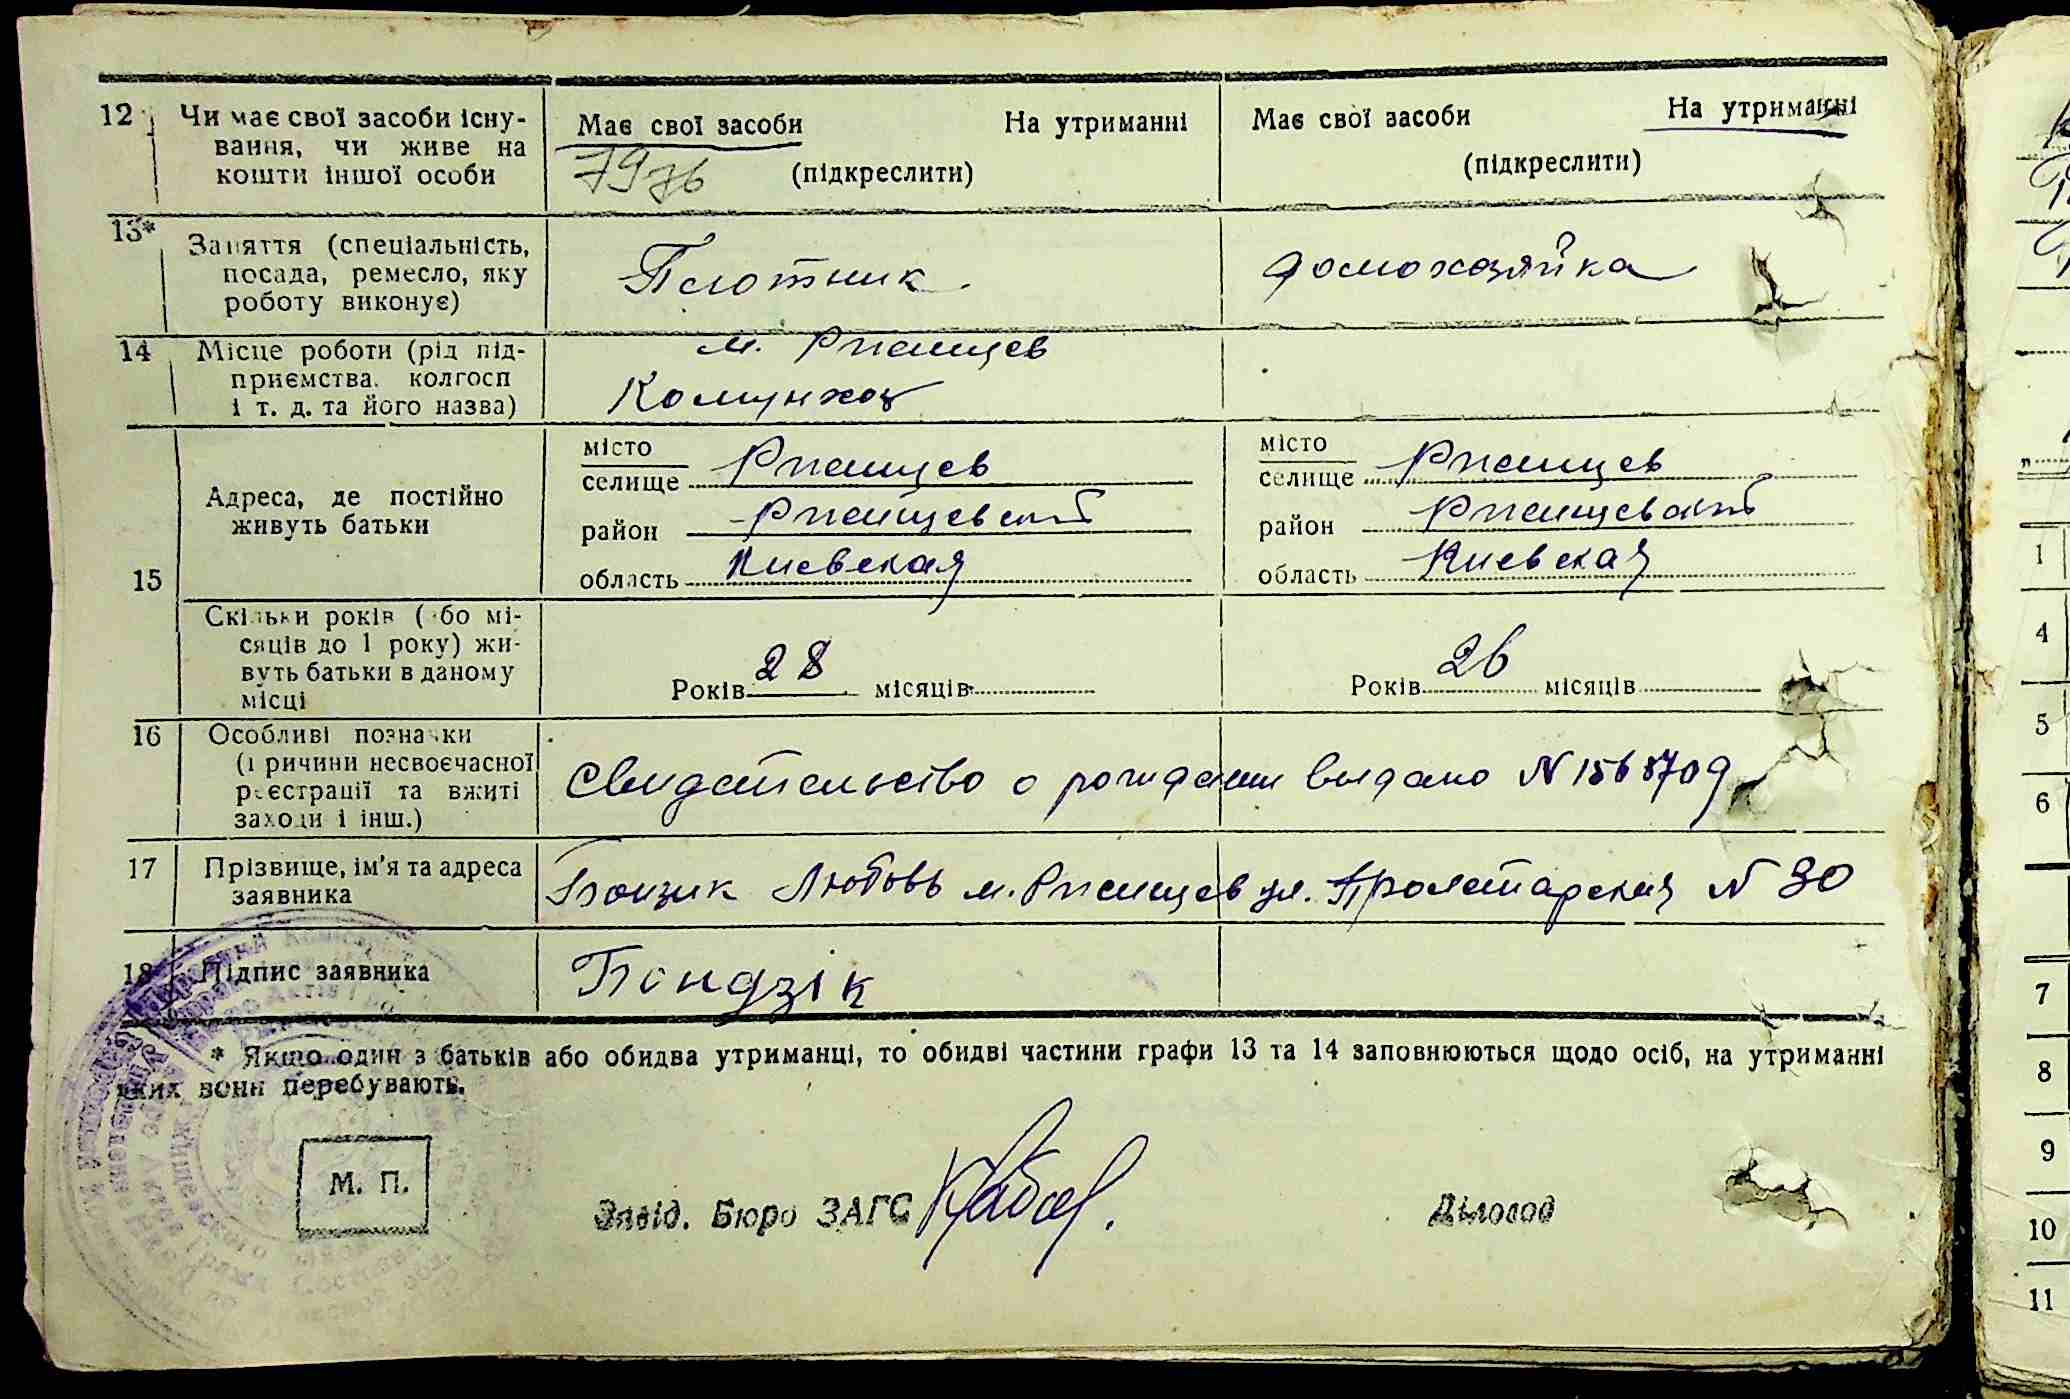 12 Чи має свої засоби існу-
вання, чи живе на
кошти іншої особи
Має свої засоби На утриманні
(підкреслити)
7976
Має свої засоби На утриманні
(підкреслити)
13* Заняття (спеціальність,
посада, ремесло, яку
роботу виконує)
Плотник
домохозяйка
14 Місце роботи (рід під-
приємства, колгосп
і т. д. та його назва)
м. Ржищев
Комунхоз
15 Адреса, де постійно
живуть батьки
місто
селище Ржищев
район Ржищевский
область Киевская
місто
селище Ржищев
район Ржищевский
область Киевская
Скільки років (або мі-
сяців до 1 року) жи-
вуть батьки в даному
місці
Років 28 місяців
Років 26 місяців
16 Особливі позначки
(причини несвоєчасної
реєстрації та вжиті
заходи і інш.)
Свидетельство о рождении выдано N
17 Прізвище, ім'я та адреса
заявника
Любовь м. Ржищев ул. Пролетарская N 30
18 Підпис заявника
Бондзік
* Якщо один з батьків або обидва утриманці, то обидві частини графи 13 та 14 заповнюються щодо осіб, на утриманні
яких вони перебувають.
М. П.
Завід. Бюро ЗАГС
Діловод
1
4
5
6
7
8
9
10
11